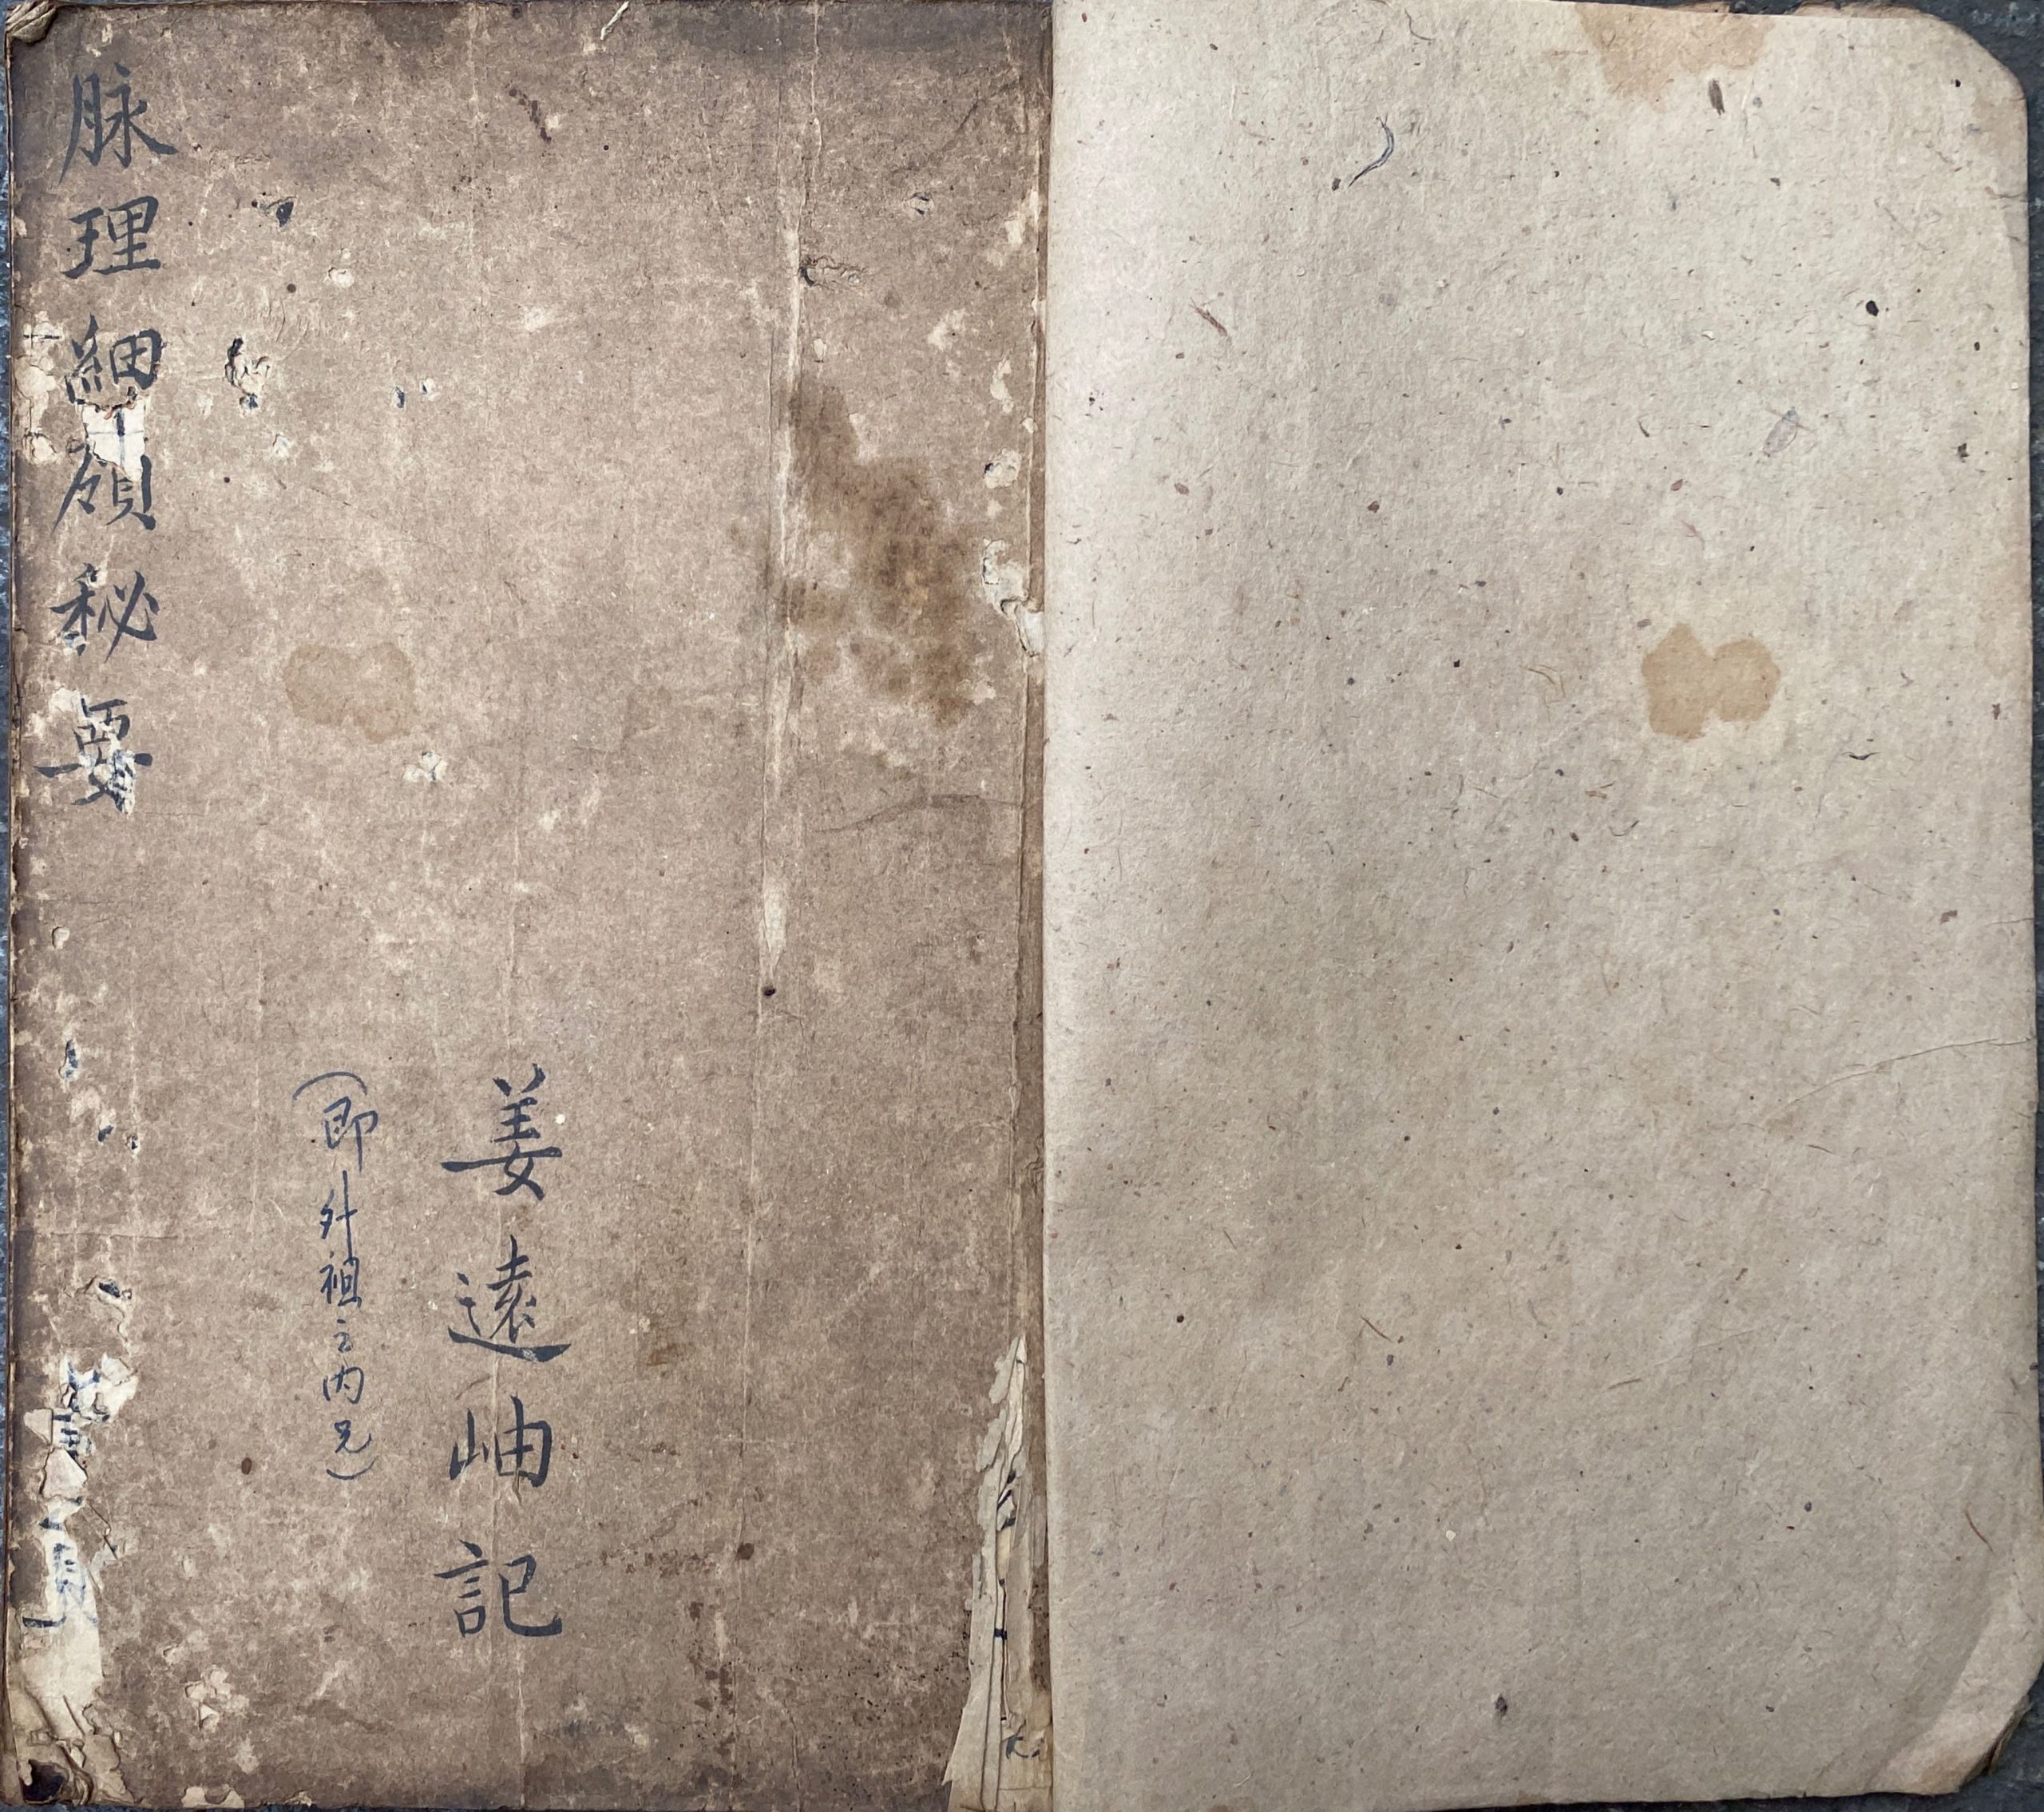 姜遠岫記
(即外祖之内兄)
脉理細領秘要